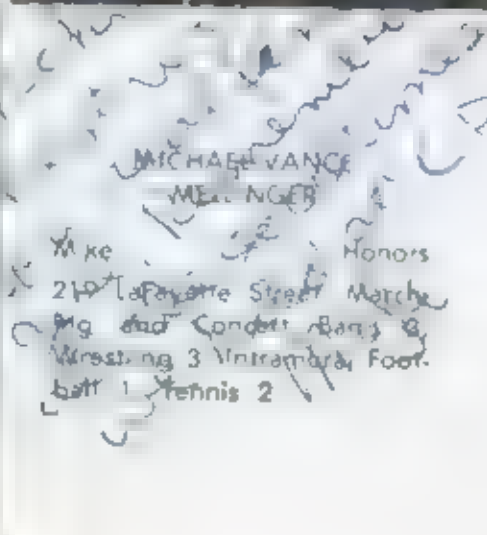 MICHAEL VANCE
Mike Honors
Street March-
ing and Concert Band
Wrestling 3 Intramural Foot-
ball 1 Tennis 2